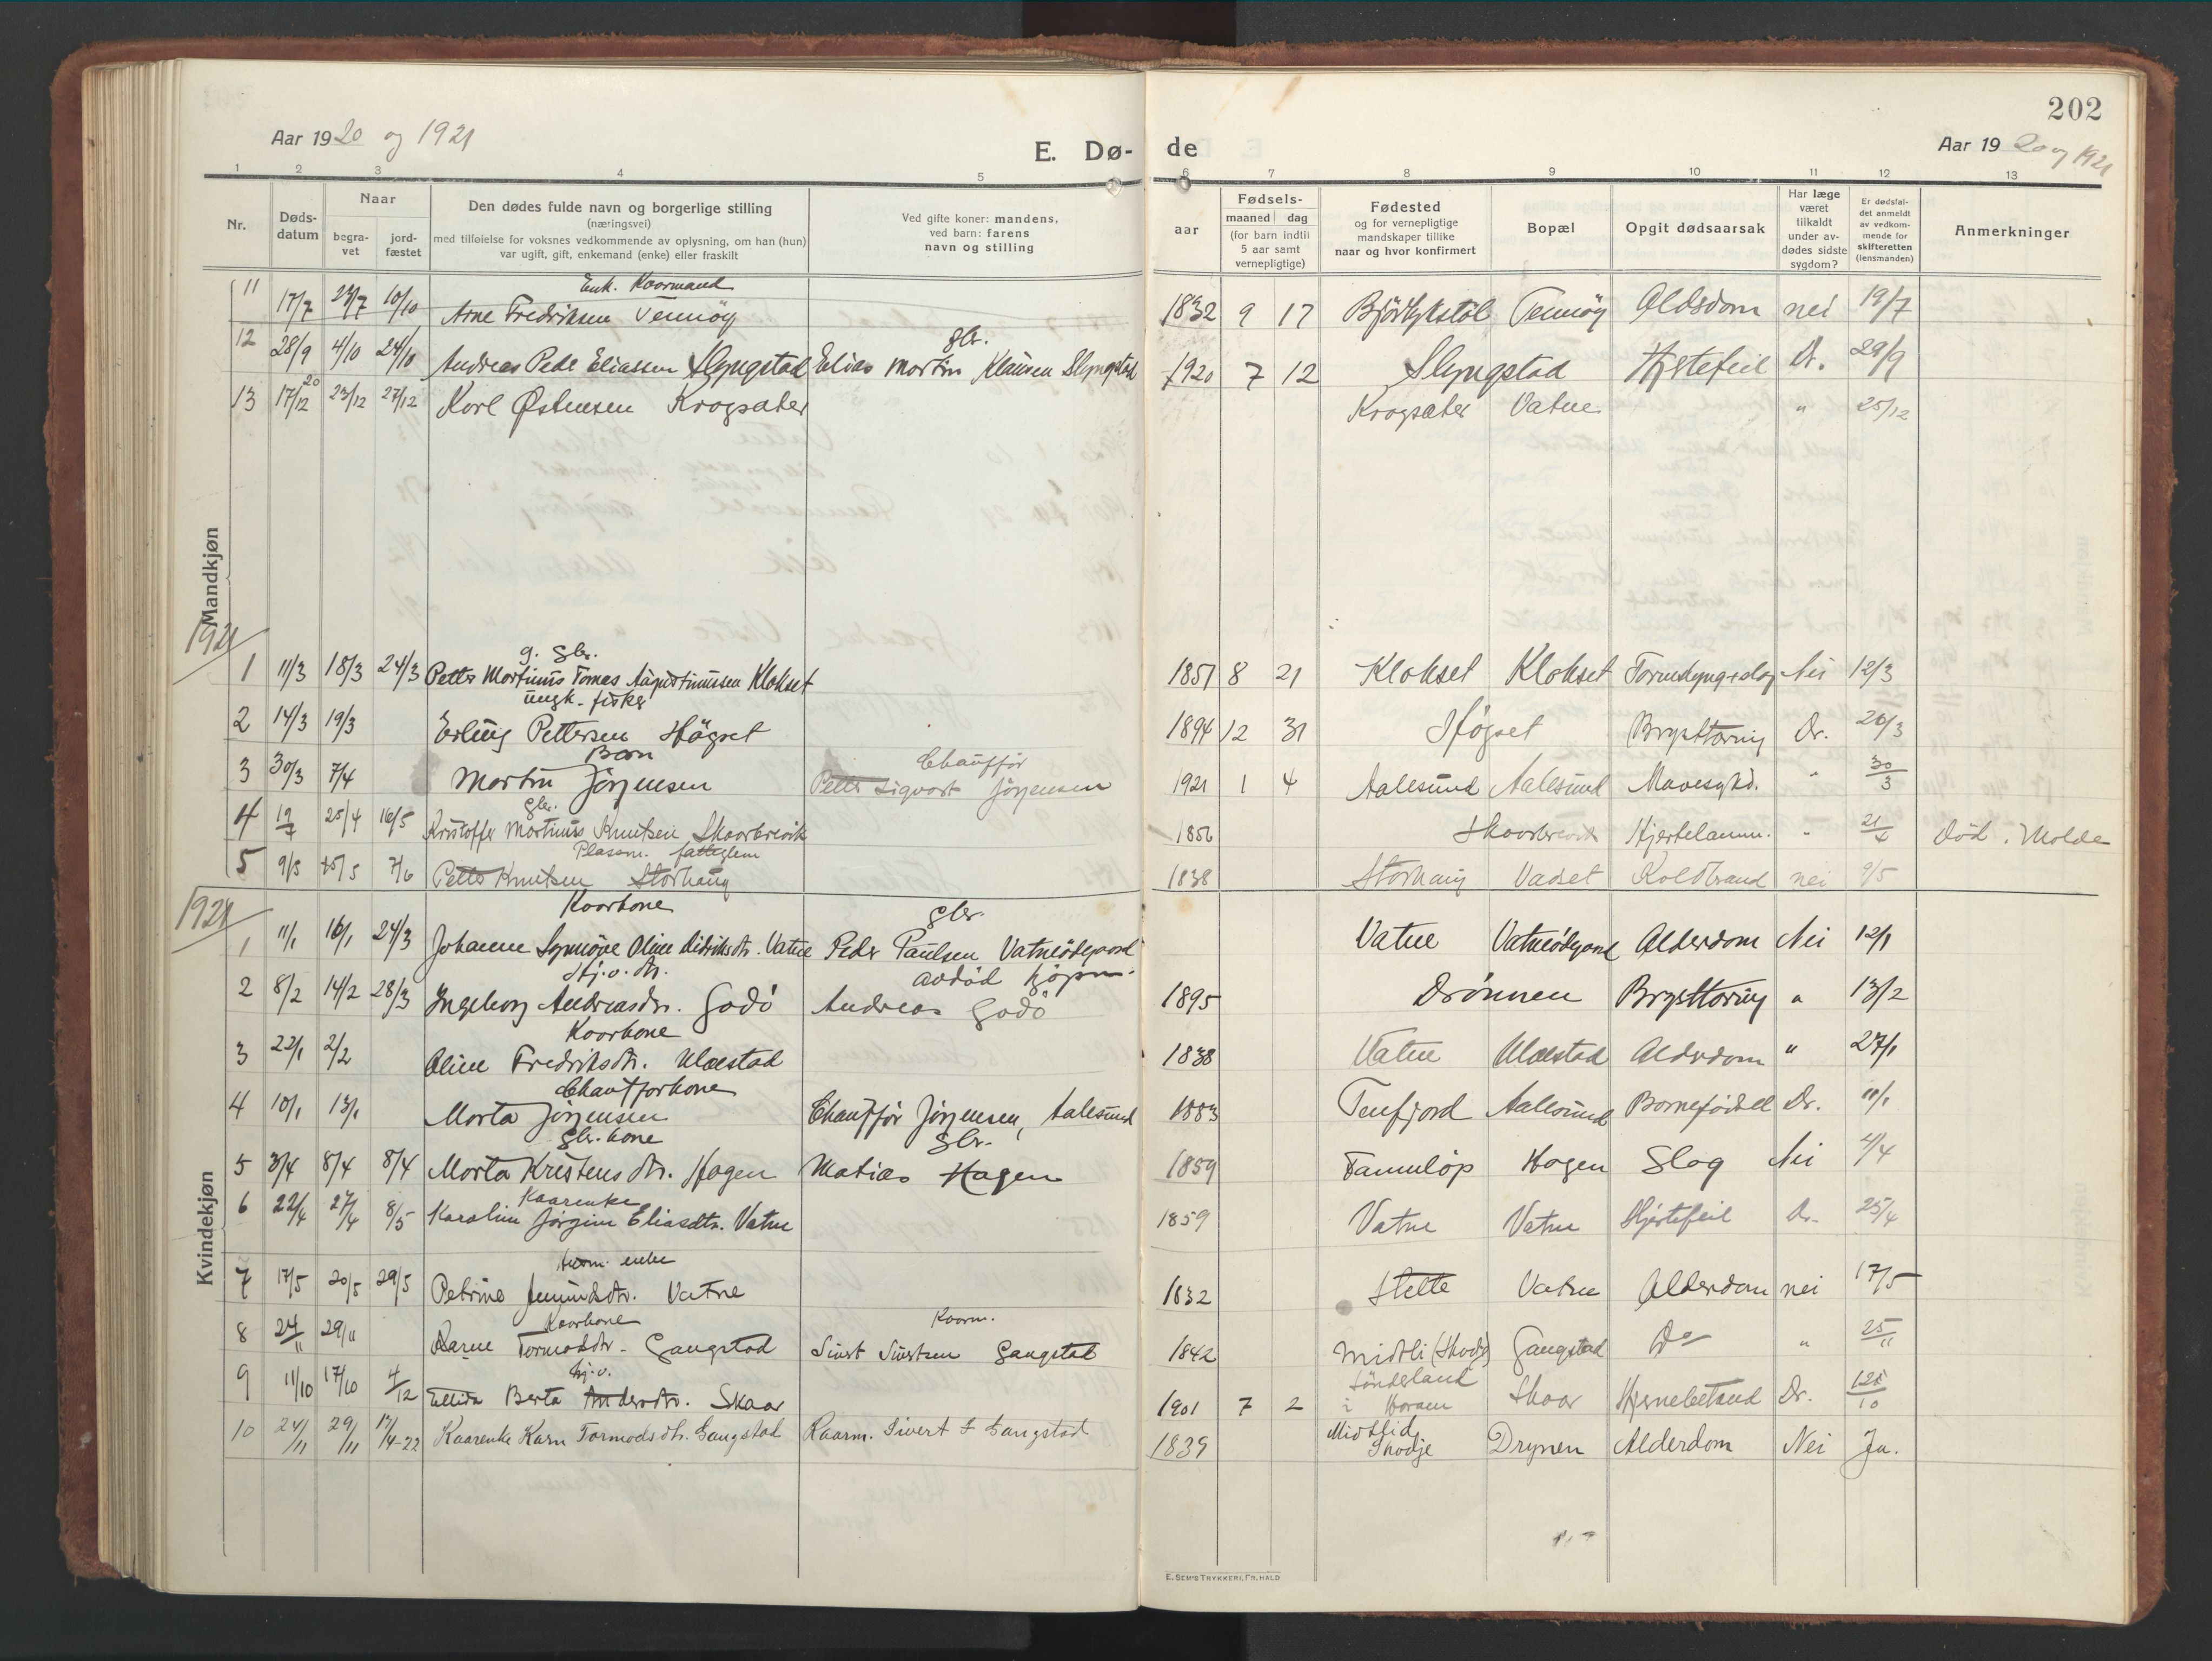 202
Aar 1920 og 1921
E. Dø-
de
Aar 1920 og 1921
1 2 3 4 5 6 7 8 9 10 11 12 13
Nr.
Døds-
datum
Naar
begra-
vet
jord-
fæstet
Den dødes fulde navn og borgerlige stilling
(næringsvei)
med tilføielse for voksnes vedkommende av oplysning, om han (hun)
var ugift, gift, enkemand (enke) eller fraskilt
Ved gifte koner: mandens,
ved barn: farens
navn og stilling
Fødsels-
aar
maaned dag
(for barn indtil
5 aar samt
vernepligtige)
Fødested
og for vernepligtige
mandskaper tillike
naar og hvor konfirmert
Bopæl
Opgit dødsaarsak
Har læge
været
tilkaldt
under av-
dødes sidste
sygdom?
Er dødsfal-
det anmeldt
av vedkom-
mende for
skifteretten
(lensmanden)
Anmerkninger
Mandkjøn
Enk. Kaarmand
11 17/7 23/7 10/10 Arne Fredriksen Tennøy 1832 9 17 Tennøy Aldsdom nei 19/7
gbr.
12 28/9 4/10 24/10 Andreas Peder Eliassen Slyngstad Elias Martin Klausen Slyngstad 1920 7 12 Slyngstad Hjertefeil Dr. 29/9
13 17/12 20 23/12 27/12 Karl Østensen Krogsæter Krogsæter Vatne " 25/12
1921
g. Gbr.
1 11/3 18/3 24/3 Petter Martinus Tomas Augustinusen Klokset 1851 8 21 Klokset Klokset Nei 12/3
ungk. fisker
2 14/3 19/3 Erling Pettersen Høgset 1894 12 31 Høgset Brysttæring Dr. 20/3
Barn Chauffør
3 30/3 7/4 Martin Jørgensen Petter Sigvart Jørgensen 1921 1 4 Aalesund Aalesund Mavesykd. " 30/3
Gbr.
4 19/4 25/4 16/5 Kristoffer Martinus Knutsen Skaarbrevik 1856 Skaarbrevik Hjertelamm. " 21/4 Død i Molde
Plassm. fattiglem
5 9/5 15/5 7/6 Petter Knutsen Storhaug 1838 Storhaug Vadset Koldbrand nei 9/5
Kvindekjøn
1921
Kaarkone Gbr.
1 11/1 16/1 24/3 Johanne Synnøve Oline Didriksdtr. Vatne Peder Paulsen Vatneødegaard Vatne Vatneødegaard Alderdom Nei 12/1
Hj.v. dtr. avdød kjøpm.
2 8/2 14/2 28/3 Ingeborg Andreasdtr. Godø Andreas Godø 1895 Drønnen Brysttæring " 13/2
Kaarkone
3 22/1 2/2 Oline Fredriksdtr. Ulæstad 1838 Vatne Ulæstad Alderdom " 27/1
Chaufførkone
4 10/1 13/1 Marta Jørgensen Chauffør Jørgensen, Aalesund 1883 Tenfjord Aalesund Barnefødsel Dr. 11/1
Gbr. kone Gbr.
5 3/4 8/4 8/4 Marta Kristensdtr. Hagen Matias Hagen 1859 Famuløp Hagen Slag Nei 4/4
Kaarenke
6 22/4 27/4 8/5 Karoline Jørgine Eliasdtr. Vatne 1859 Vatne Vatne Hjertefeil Dr. 25/4
enke
7 17/5 20/5 29/5 Petrine Vatne 1832 Stette Vatne Alderdom nei 17/5
Kaarkone Kaarm.
8 24/11 29/11 Karne Tormodsdtr. Gangstad Sivert Sivertsen Gangstad 1842 Midtli (Skodje) Gangstad Do " 25/11
hj.v.
9 11/10 17/10 4/12 Ellida Berta Andersdtr. Skaar 1901 7 2 Sønderland i Haram Skaar Hjernebetænd Dr. 12/10
10 24/11 29/11 17/4-22 Kaarenke Karn Tormodsdtr. Gangstad Kaarm. Sivert S Gangstad 1839 Midtlid Skodje Drynen Alderdom Nei Ja.
E. SEM'S TRYKKERI, FR. HALD